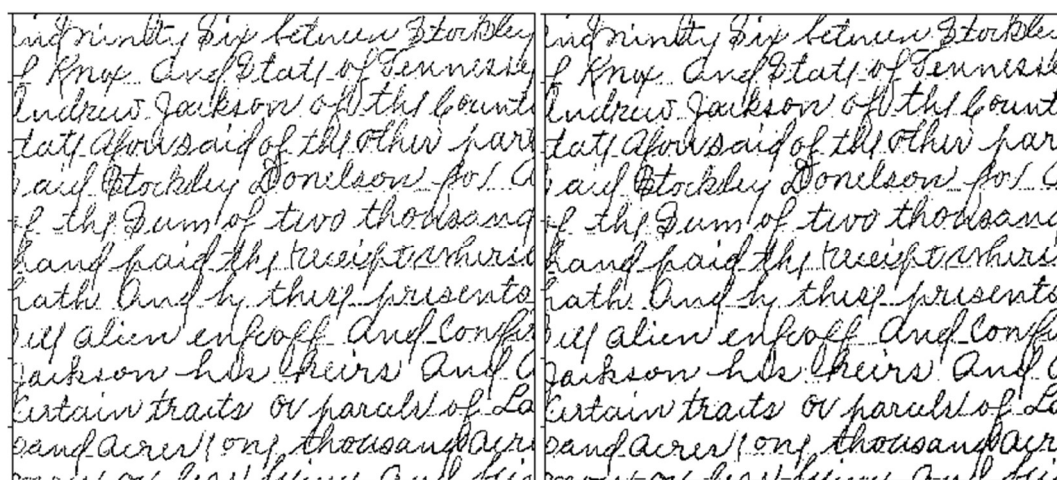 and ninety Six between Stockley
of Knox and State of Tennesse
Andrew Jackson of the Count
tate aforesaid of the other part
aid Stockley Donelson for a
of the Sum of two thousand
hand paid the receipt whereo
hath and by these presents
ell alien enfeoff and Confi
Jackson his heirs and a
Certain tracts or parcels of La
sand acres one thousand acre
or less lying and
and ninety Six between Stockley
of Knox and State of Tennesse
Andrew Jackson of the Count
tate aforesaid of the other par
aid Stockley Donelson for a
of the Sum of two thousand
hand paid the receipt where
hath and by these presents
ell alien enfeoff and Confi
Jackson his heirs and
Certain tracts or parcels of La
sand acres one thousand acre
or less lying and